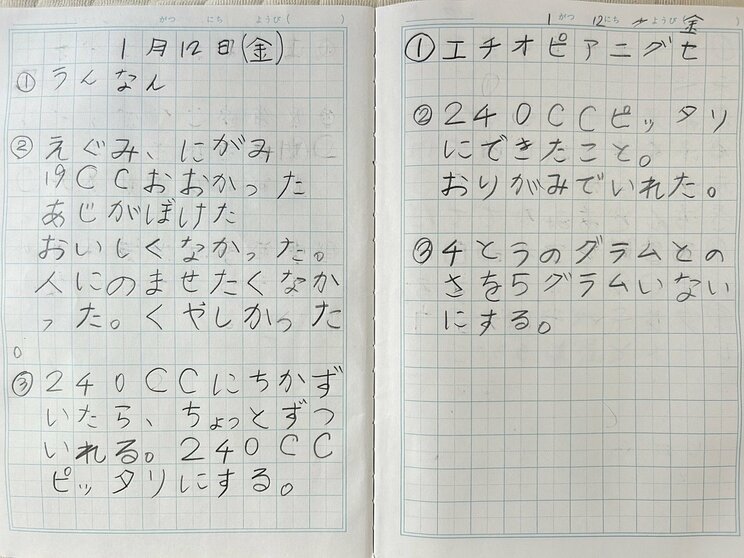 がつ にち ようび( )
1月12日(金)
①うんなん
②えぐみ、にがみ
19CCおおかった
あじがぼけた
おいしくなかった。
人にのませたくなか
った。くやしかった
。
③240CCにちかず
いたら、ちょっとずつ
いれる。240CC
ピッタリにする。
1がつ 12にち ようび(金)
①エチオピアニグセ
②240CCピッタリ
にできたこと。
おりがみでいれた。
③4とうのグラムとの
さを5グラムいない
にする。